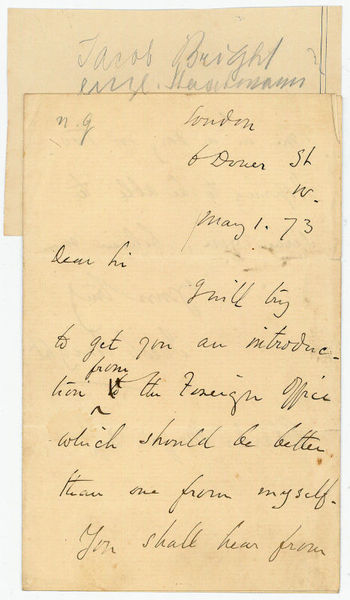 Jacob Bright
engl. Staatsmann
n.g
London
6 Dover St
W.
May 1. 73
Dear Sir
I will try
to get you an introduc-
from
tion to the Foreign Office
which should be better
than one from myself.
You shall hear from